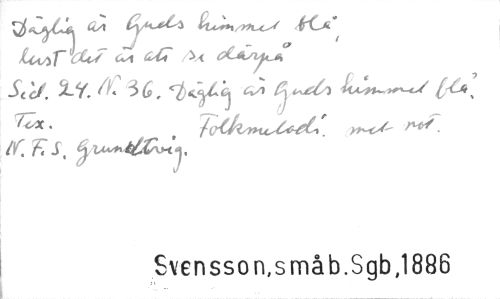 Däglig är Guds himmel blå,
lust det är att se därpå
Sid. 24. N. 36. Däglig är Guds himmel blå.
Tex. Folkmelodi. met not.
N. F. S. Grundtvig.
Svensson, småb. Sgb, 1886